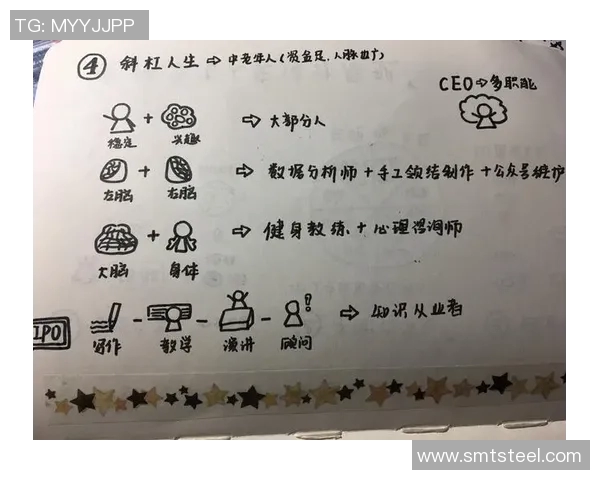 TG: MYYJJPP
④ 斜杠人生 ⇨ 中老年人(资金足,人脉广)
CEO⇨多职能
+ ⇨ 大部分人
稳定 兴趣
+ ⇨ 数据分析师+手工领结制作+公众号维护
左脑 右脑
+ ⇨ 健身教练+心理咨询师
大脑 身体
IPO
- - - !? ⇨ 知识从业者
写作 教学 演讲 顾问
www.smtsteel.com